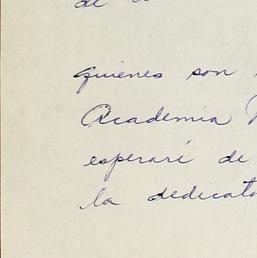 de
quienes son
Academia
esperaré de
la